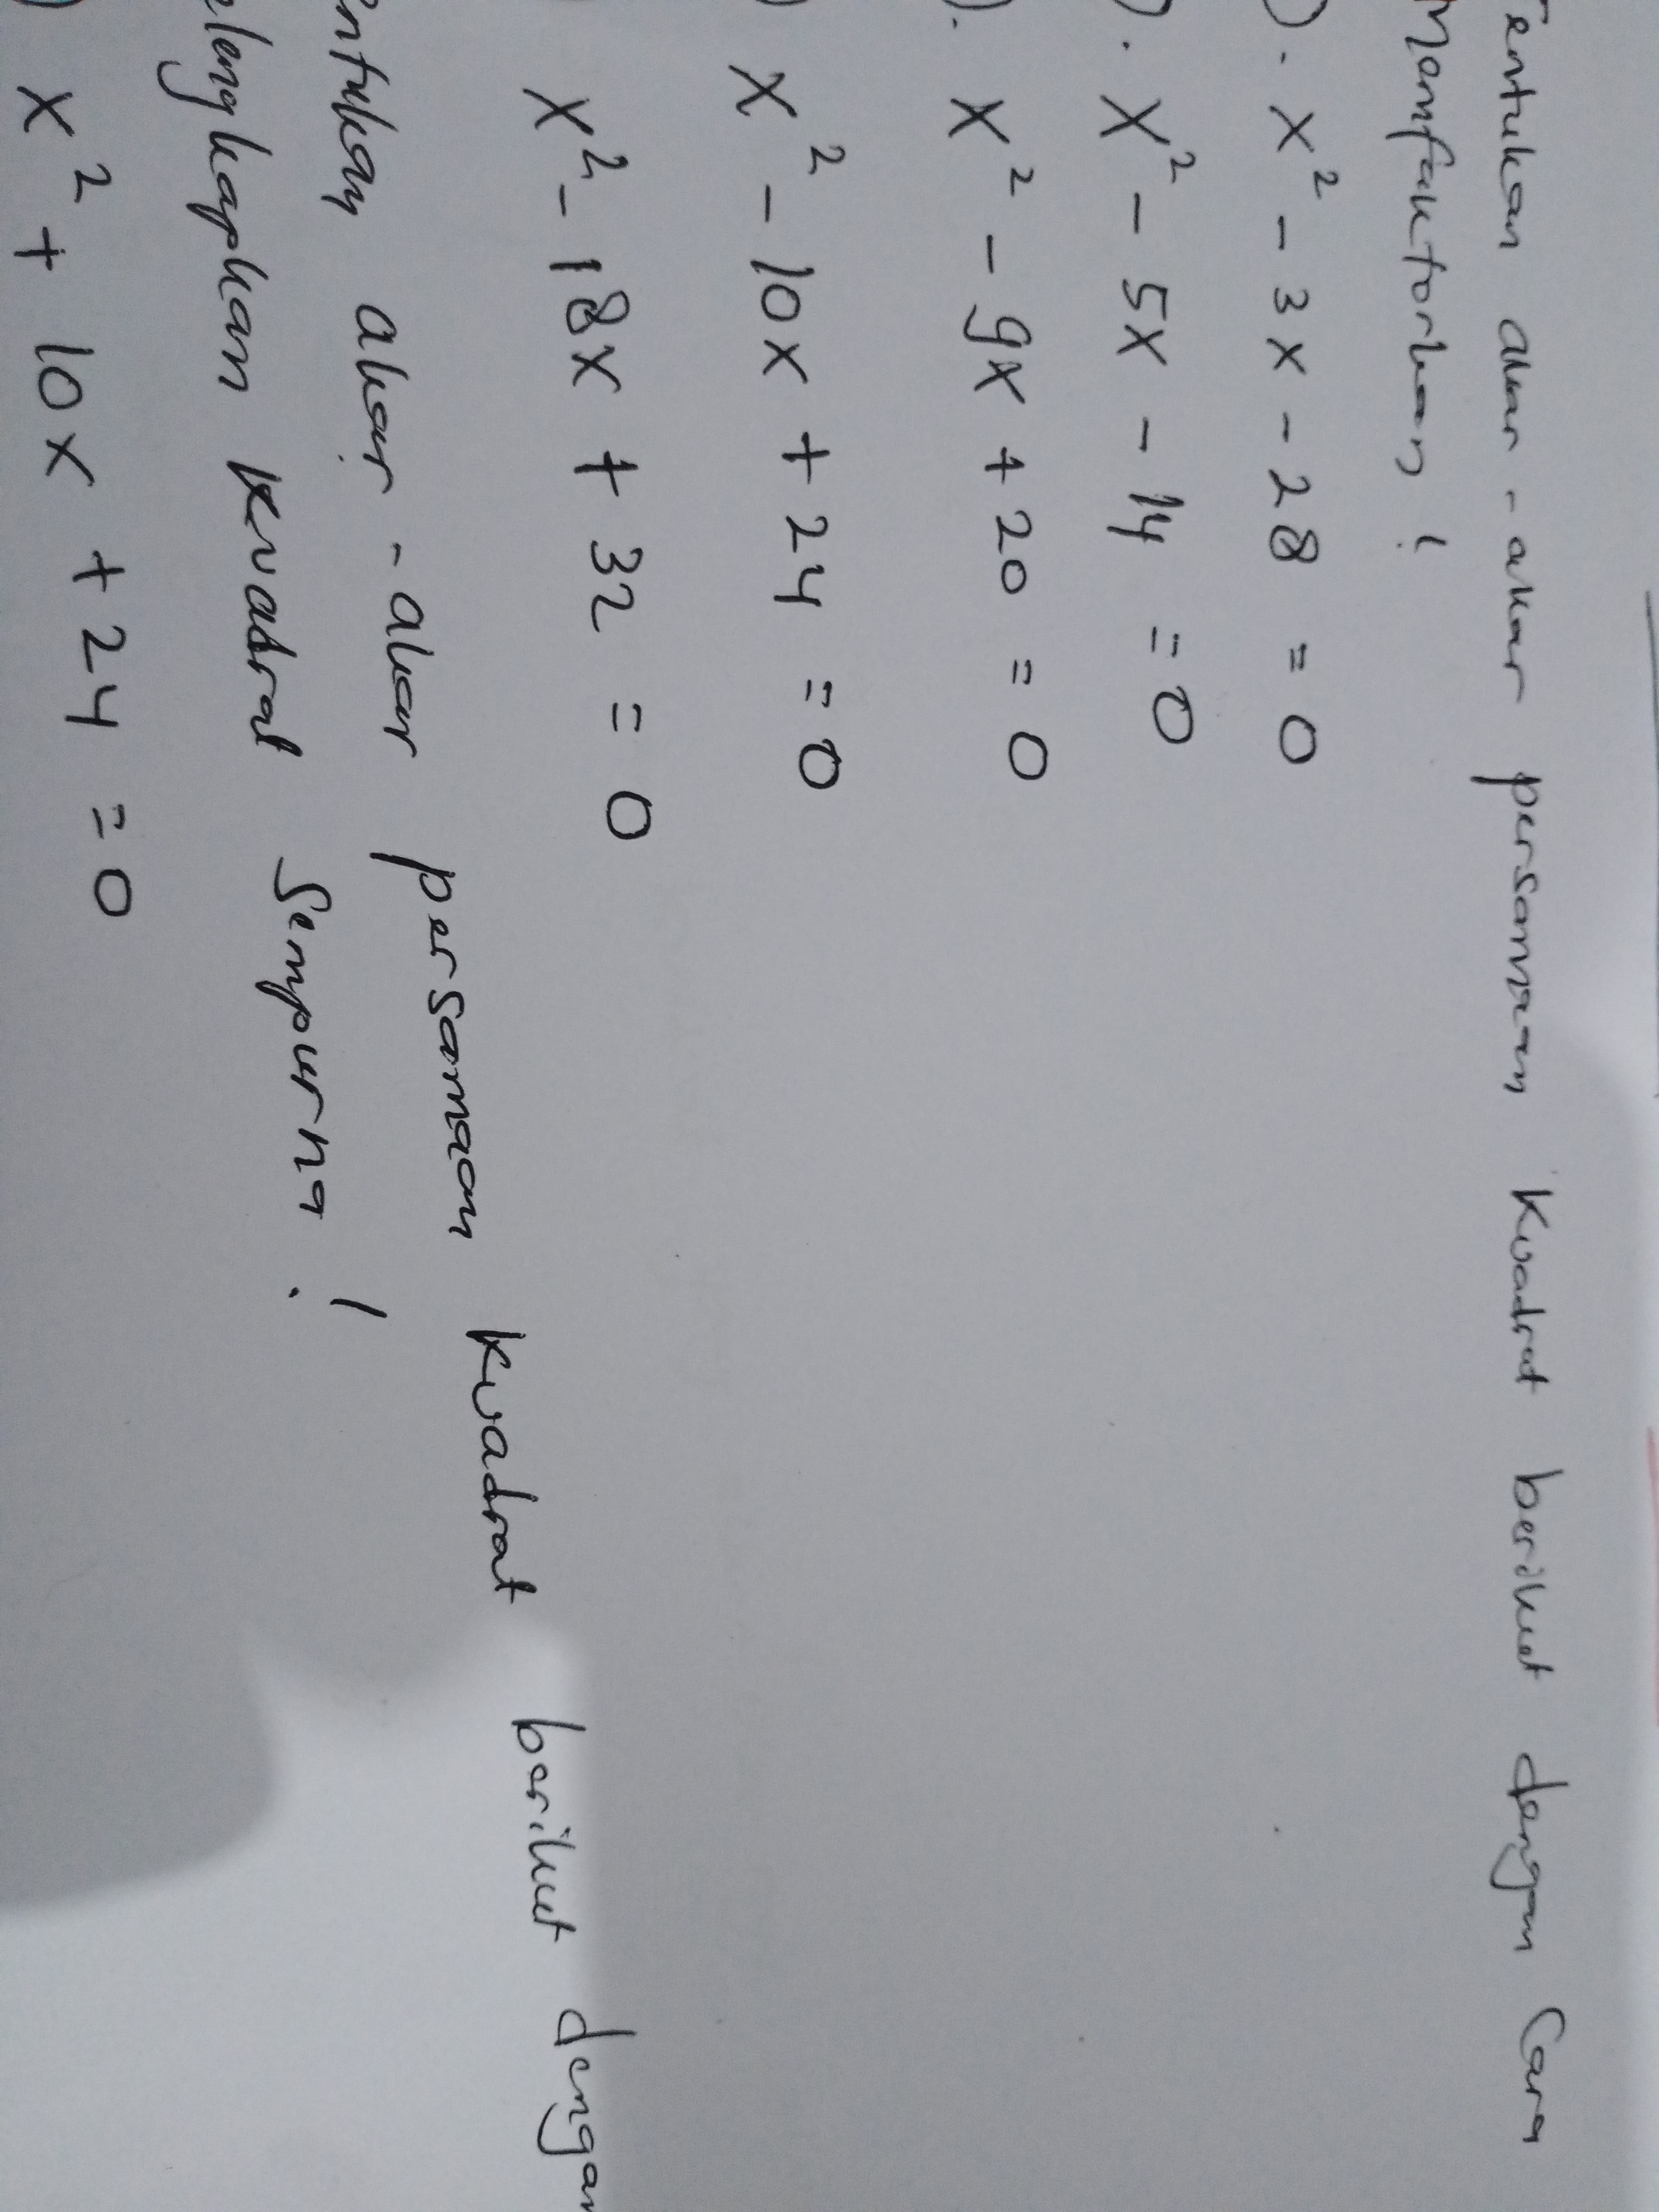 Tentukan akar-akar persamaan kuadrat berikut dengan cara
Memfaktorkan!
). x² - 3x - 28 = 0
). x² - 5x - 14 = 0
). x² - 9x + 20 = 0
) x² - 10x + 24 = 0
x² - 18x + 32 = 0
entukan akar-akar persamaan kuadrat berikut dengan
elengkapkan kuadrat sempurna!
) x² + 10x + 24 = 0